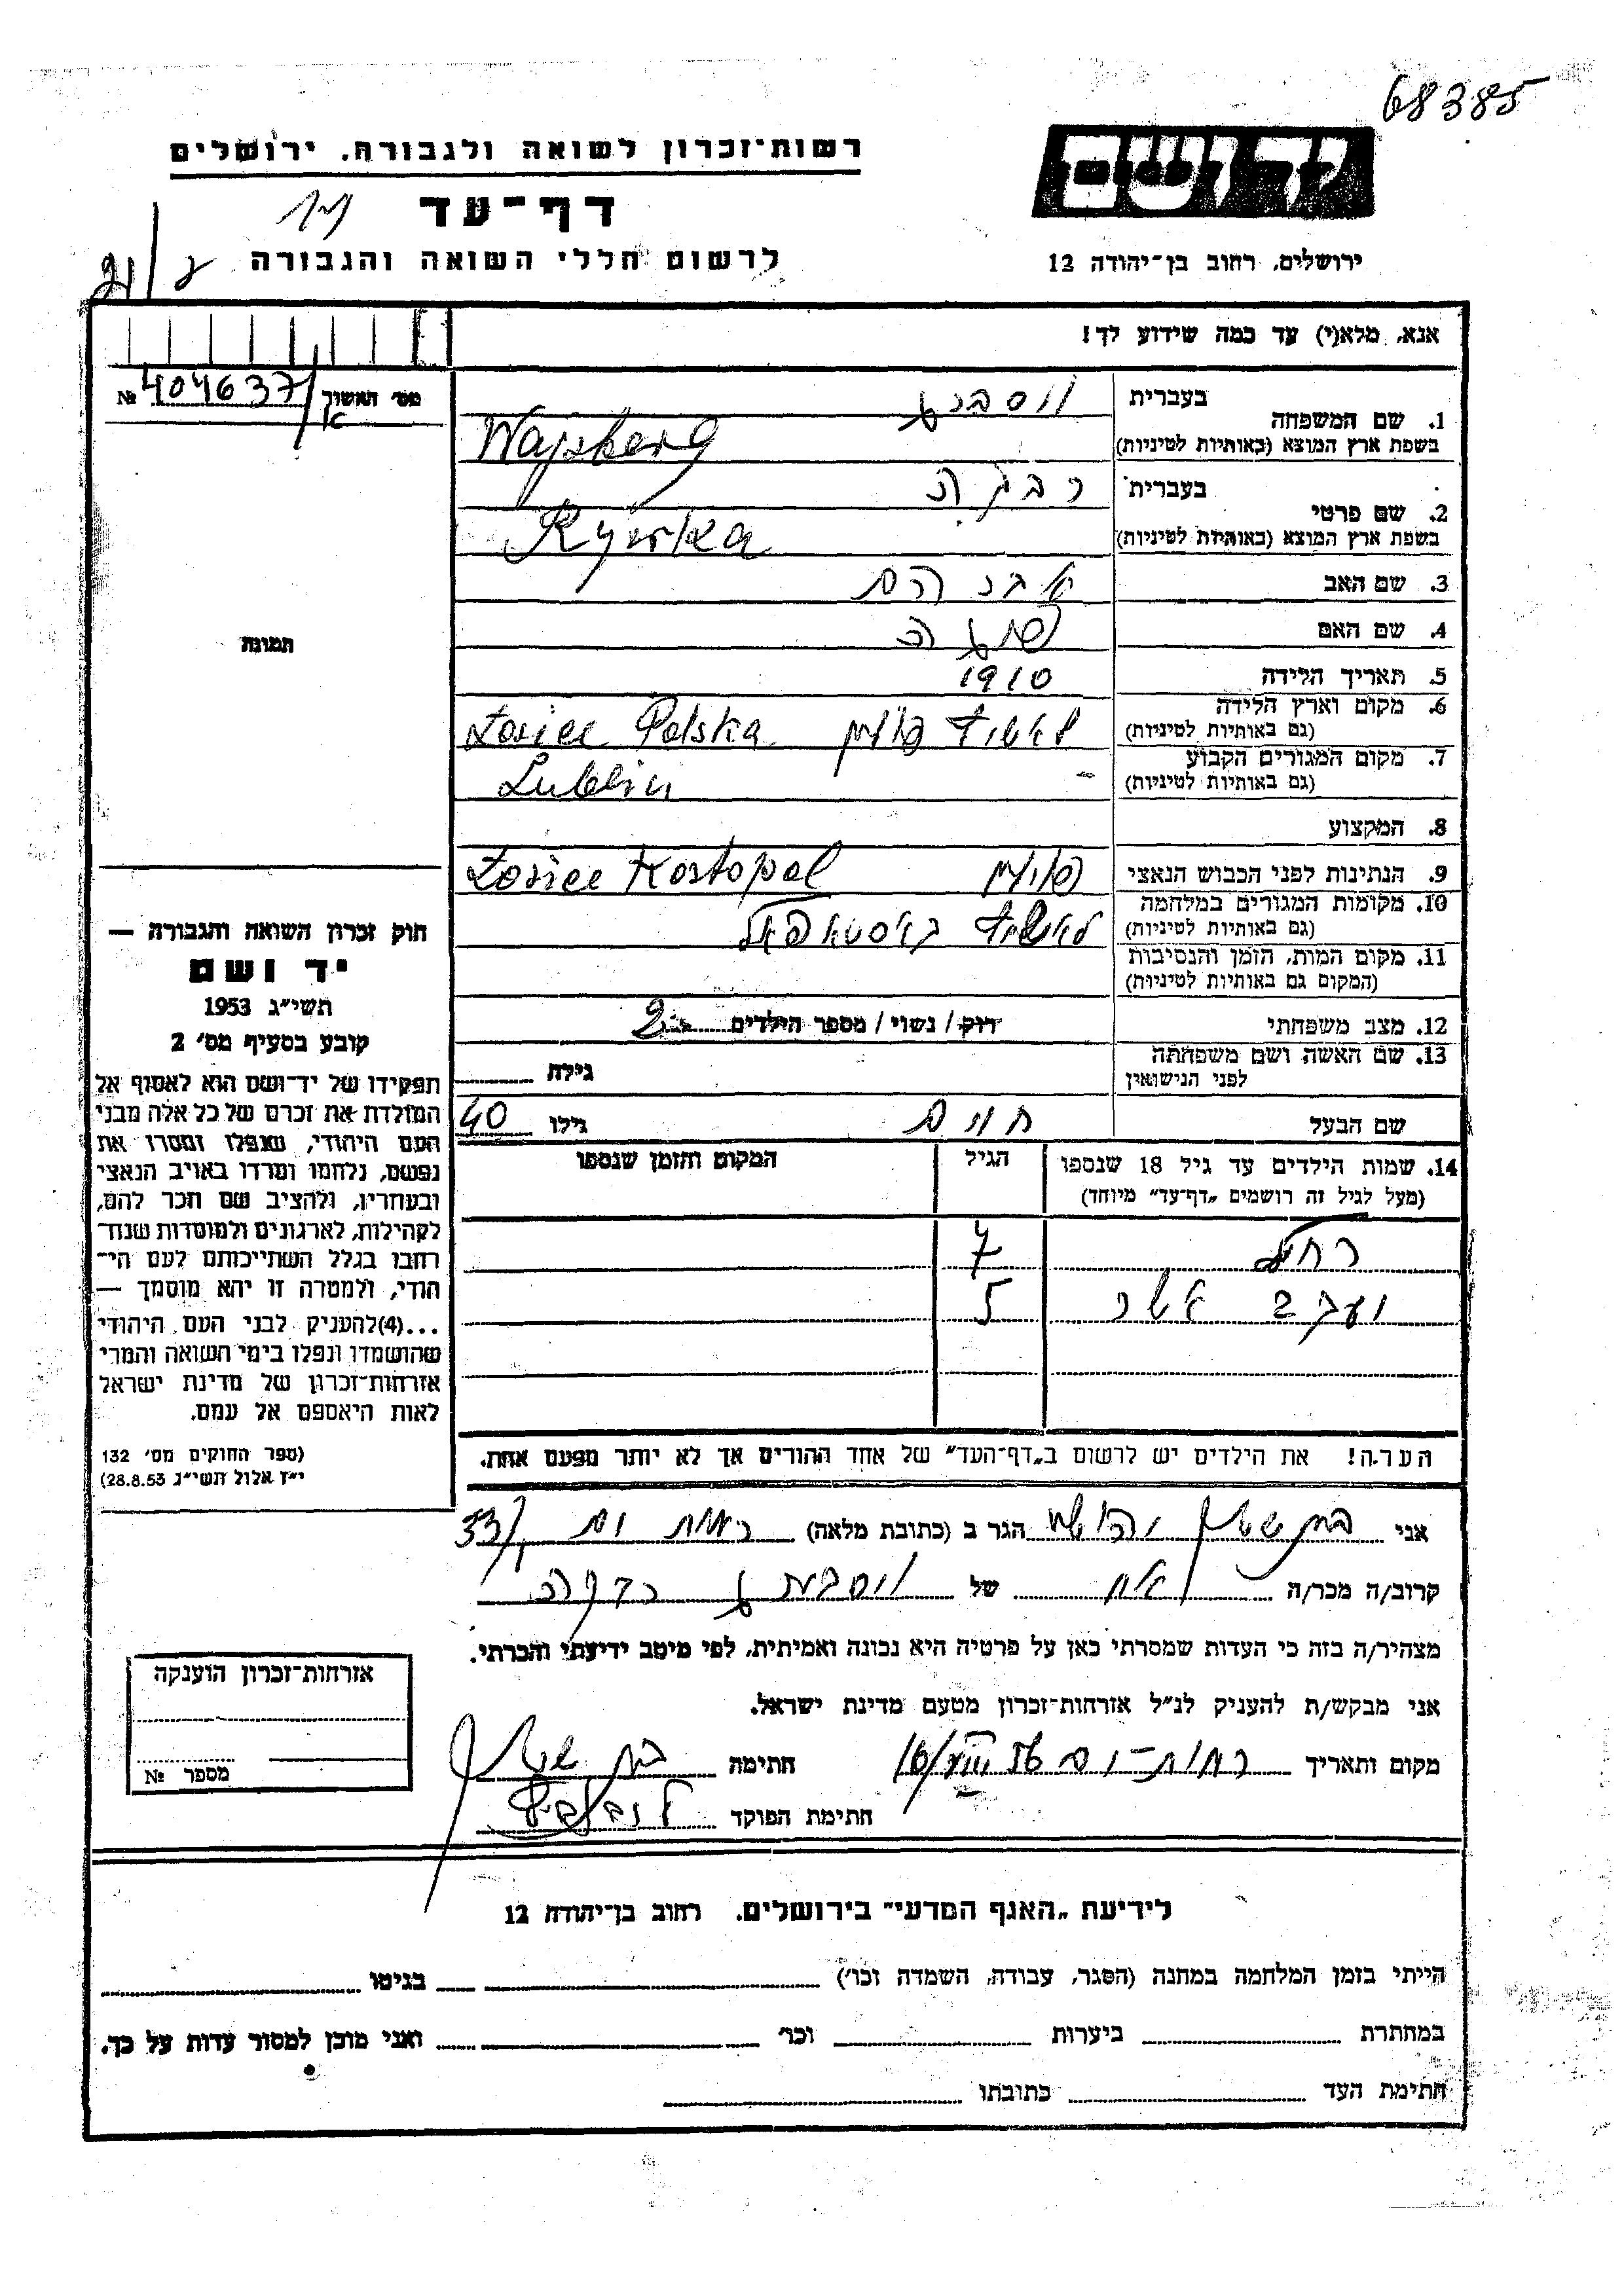 68385
יד ושם
רשות־זכרון לשואה ולגבורה, ירושלים
דף־עד
לרשום חללי השואה והגבורה
ירושלים, רחוב בן־יהודה 12
אנא, מלא(י) עד כמה שידוע לך!
מס' האשור № 404637/א
תמונה
1. שם המשפחה
בעברית
בשפת ארץ המוצא (באותיות לטיניות) Wajsberg
2. שם פרטי
בעברית רבקה
בשפת ארץ המוצא (באותיות לטיניות) Rywka
3. שם האב אברהם
4. שם האם
5. תאריך הלידה 1910
6. מקום וארץ הלידה (גם באותיות לטיניות) פולין Łosice Polska
7. מקום המגורים הקבוע (גם באותיות לטיניות) - Lublin
8. המקצוע
9. הנתינות לפני הכבוש הנאצי פולין
10. מקומות המגורים במלחמה (גם באותיות לטיניות) Łosice Kostopol
11. מקום המות, הזמן והנסיבות (המקום גם באותיות לטיניות)
12. מצב משפחתי רוק / נשוי / מספר הילדים 2
13. שם האשה ושם משפחתה לפני הנישואין גילה
שם הבעל חיים גילו 40
14. שמות הילדים עד גיל 18 שנספו (מעל לגיל זה רושמים „דף־עד" מיוחד) הגיל המקום והזמן שנספו
רחל 7
יעקב אשר 5
הערה! את הילדים יש לרשום ב„דף־העד" של אחד ההורים אך לא יותר מפעם אחת.
חוק זכרון השואה והגבורה —
יד ושם
תשי"ג 1953
קובע בסעיף מס' 2
תפקידו של יד־ושם הוא לאסוף אל
המולדת את זכרם של כל אלה מבני
העם היהודי, שנפלו ומסרו את
נפשם, נלחמו ומרדו באויב הנאצי
ובעוזריו, ולהציב שם וזכר להם,
לקהילות, לארגונים ולמוסדות שנח־
רבו בגלל השתייכותם לעם הי־
הודי, ולמטרה זו יהא מוסמך —
...(4) להעניק לבני העם היהודי
שהושמדו ונפלו בימי השואה והמרי
אזרחות־זכרון של מדינת ישראל
לאות היאספם אל עמם.
(ספר החוקים מס' 132
י"ז אלול תשי"ג 28.8.53)
אני הגר ב (כתובת מלאה) 33
קרוב/ה מכר/ה אח של רבקה
מצהיר/ה בזה כי העדות שמסרתי כאן על פרטיה היא נכונה ואמיתית, לפי מיטב ידיעתי והכרתי.
אני מבקש/ת להעניק לנ"ל אזרחות־זכרון מטעם מדינת ישראל.
מקום ותאריך חתימה
חתימת הפוקד
אזרחות־זכרון הוענקה
מספר №
לידיעת „האגף המדעי" בירושלים, רחוב בן־יהודה 12
הייתי בזמן המלחמה במחנה (הסגר, עבודה, השמדה וכו') בגיטו
במחתרת ביערות וכו' ואני מוכן למסור עדות על כך.
חתימת העד כתובתו